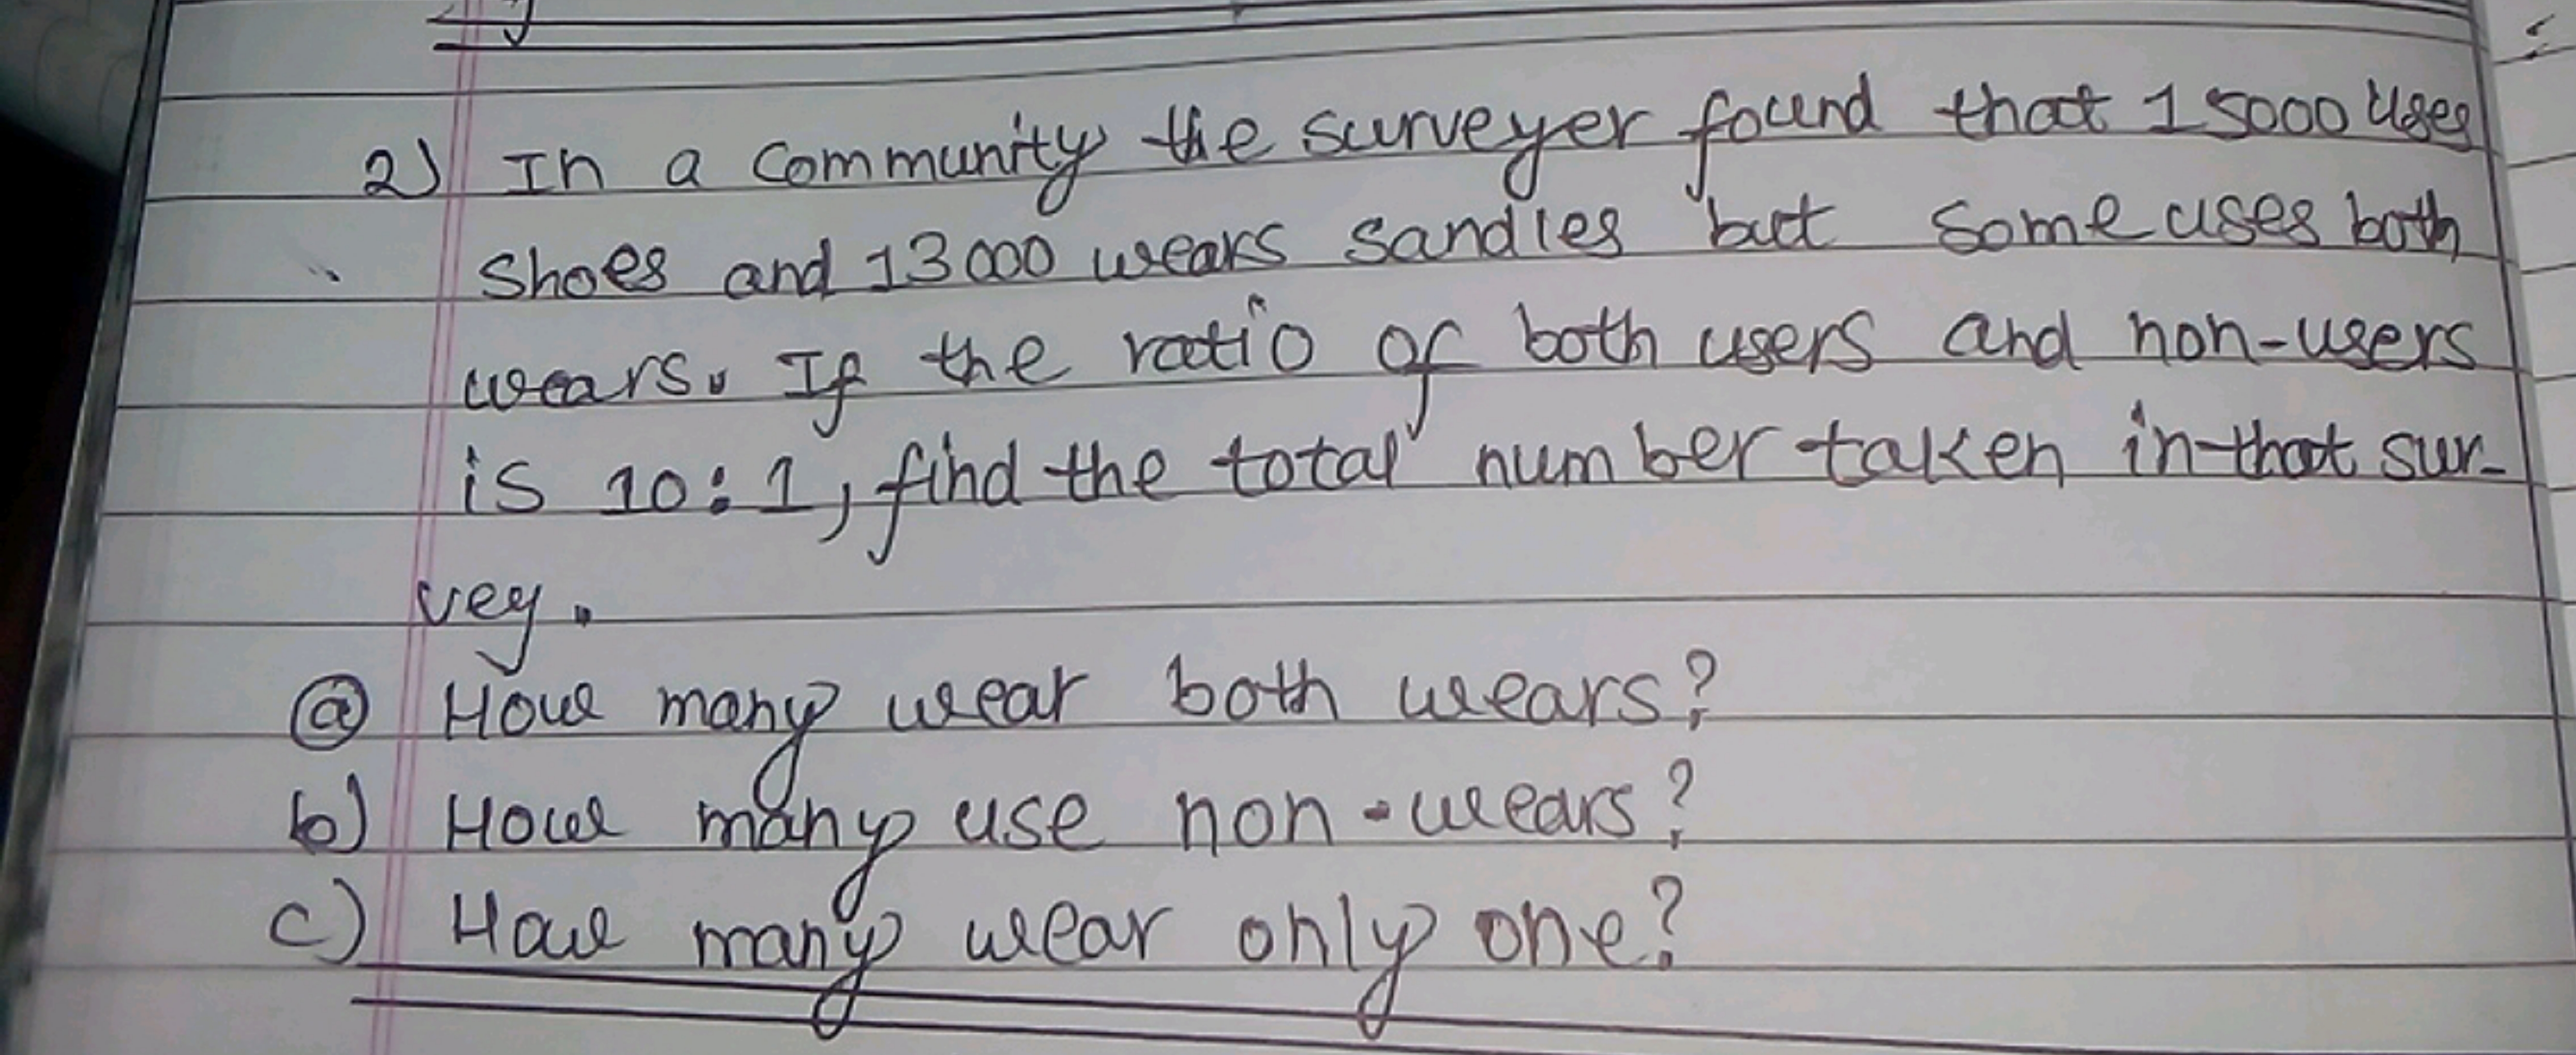 2) In a community the surveyer found that 15000 uses
shoes and 13000 wears sandles but some uses both
wears. If the ratio of both users and non-users
is 10:1, find the total number taken in that sur-
vey.
(a) How many wear both wears?
b) How many use non-wears?
c) How many wear only one?